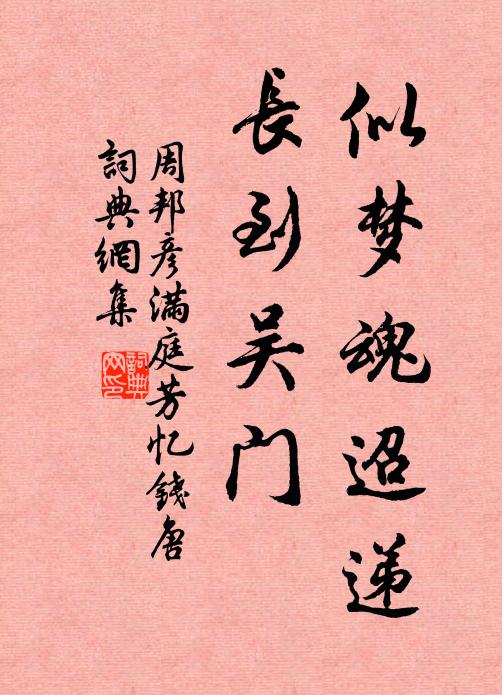 似梦魂迢递
長到吴门
周邦彦满庭芳忆錢唐
詞典網集
詞典
网印